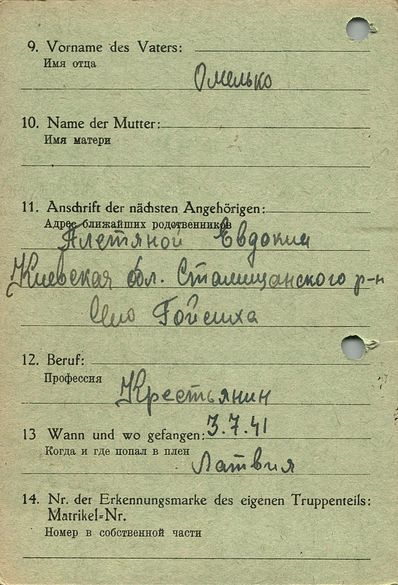 9. Vorname des Vaters:
Имя отца
Омелько
10. Name der Mutter:
Имя матери
11. Anschrift der nächsten Angehörigen:
Адрес ближайших родственников
Плетяной Евдокии
Киевская обл. Сталищанского р-н
Село Гойсиха
12. Beruf:
Профессия
Крестьянин
13 Wann und wo gefangen: 3.7.41
Когда и где попал в плен
Латвия
14. Nr. der Erkennungsmarke des eigenen Truppenteils:
Matrikel=Nr.
Номер в собственной части